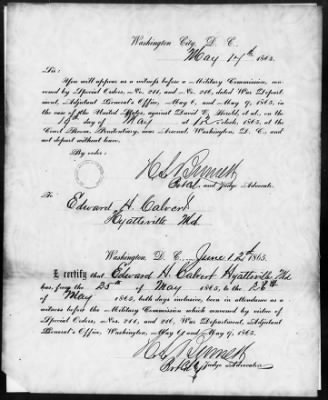 Washington City, D. C.
May 17th 1865.
Sir:
You will appear as a witness before a Military Commission, con-
vened by Special Orders, Nos. 211, and No. 216, dated War Depart-
ment, Adjutant General's Office, May 6, and May 9, 1865, in
the case of the United States, against David E. Herold, et al., on the
19th day of May at 12 o'clock, 1865, at the
Court Room, Penitentiary, near Arsenal Washington, D. C., and
not depart without leave.
By order:
H L Burnett
Bt Col. and Judge Advocate.
To
Edward H. Calvert
Hyattsville Md.
Washington D. C. June 12th 1865.
I certify that Edward H. Calvert Hyattsville Md.
has, from the 25th of May 1865, to the 26th
of May 1865, both days inclusive, been in attendance as a
witness before the Military Commission which convened by virtue of
Special Orders, Nos. 211, and 216, War Department, Adjutant
General's Office, Washington, May 6, and May 9, 1865.
H L Burnett
Bt Col & Judge Advocate.